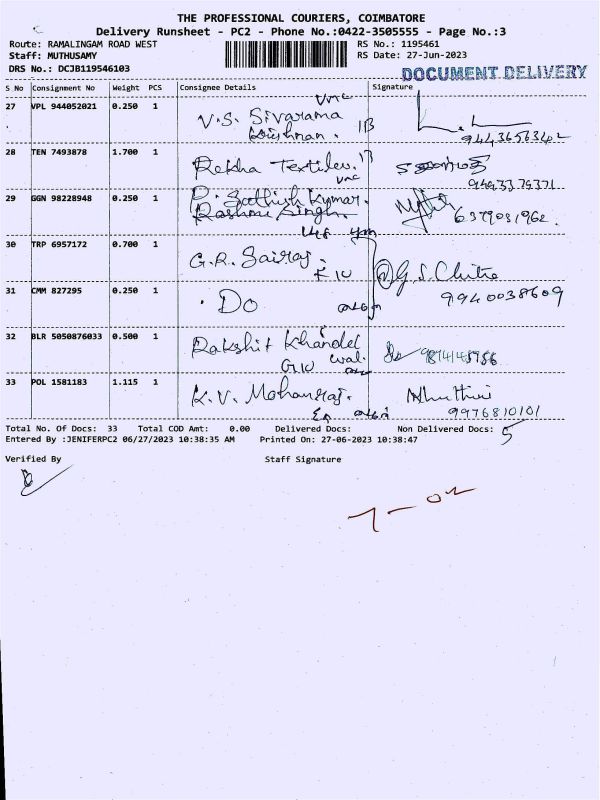 THE PROFESSIONAL COURIERS, COIMBATORE
Delivery Runsheet - PC2 - Phone No.:0422-3505555 - Page No.:3
Route: RAMALINGAM ROAD WEST RS No.: 1195461
Staff: MUTHUSAMY RS Date: 27-Jun-2023
DRS No.: DCJB119546103 DOCUMENT DELIVERY
S No Consignment No Weight PCS Consignee Details Signature
27 VPL 944052021 0.250 1 V.S. Sivarama
Krishnan. 9443656342
28 TEN 7493878 1.700 1 Rekha Textiles.
29 GGN 98228948 0.250 1 P. Sathish Kumar.
Rashmi Singh 6379031962.
30 TRP 6957172 0.700 1 G.R. Sairaj. G.S. Chitra
31 CMM 827295 0.250 1 Do 9940038609
32 BLR 5050876033 0.500 1 Rakshit Khandel
wal.
33 POL 1581183 1.115 1 K.V. Mohanraj.
9976810101
Total No. Of Docs: 33 Total COD Amt: 0.00 Delivered Docs: Non Delivered Docs: 5
Entered By :JENIFERPC2 06/27/2023 10:38:35 AM Printed On: 27-06-2023 10:38:47
Verified By Staff Signature